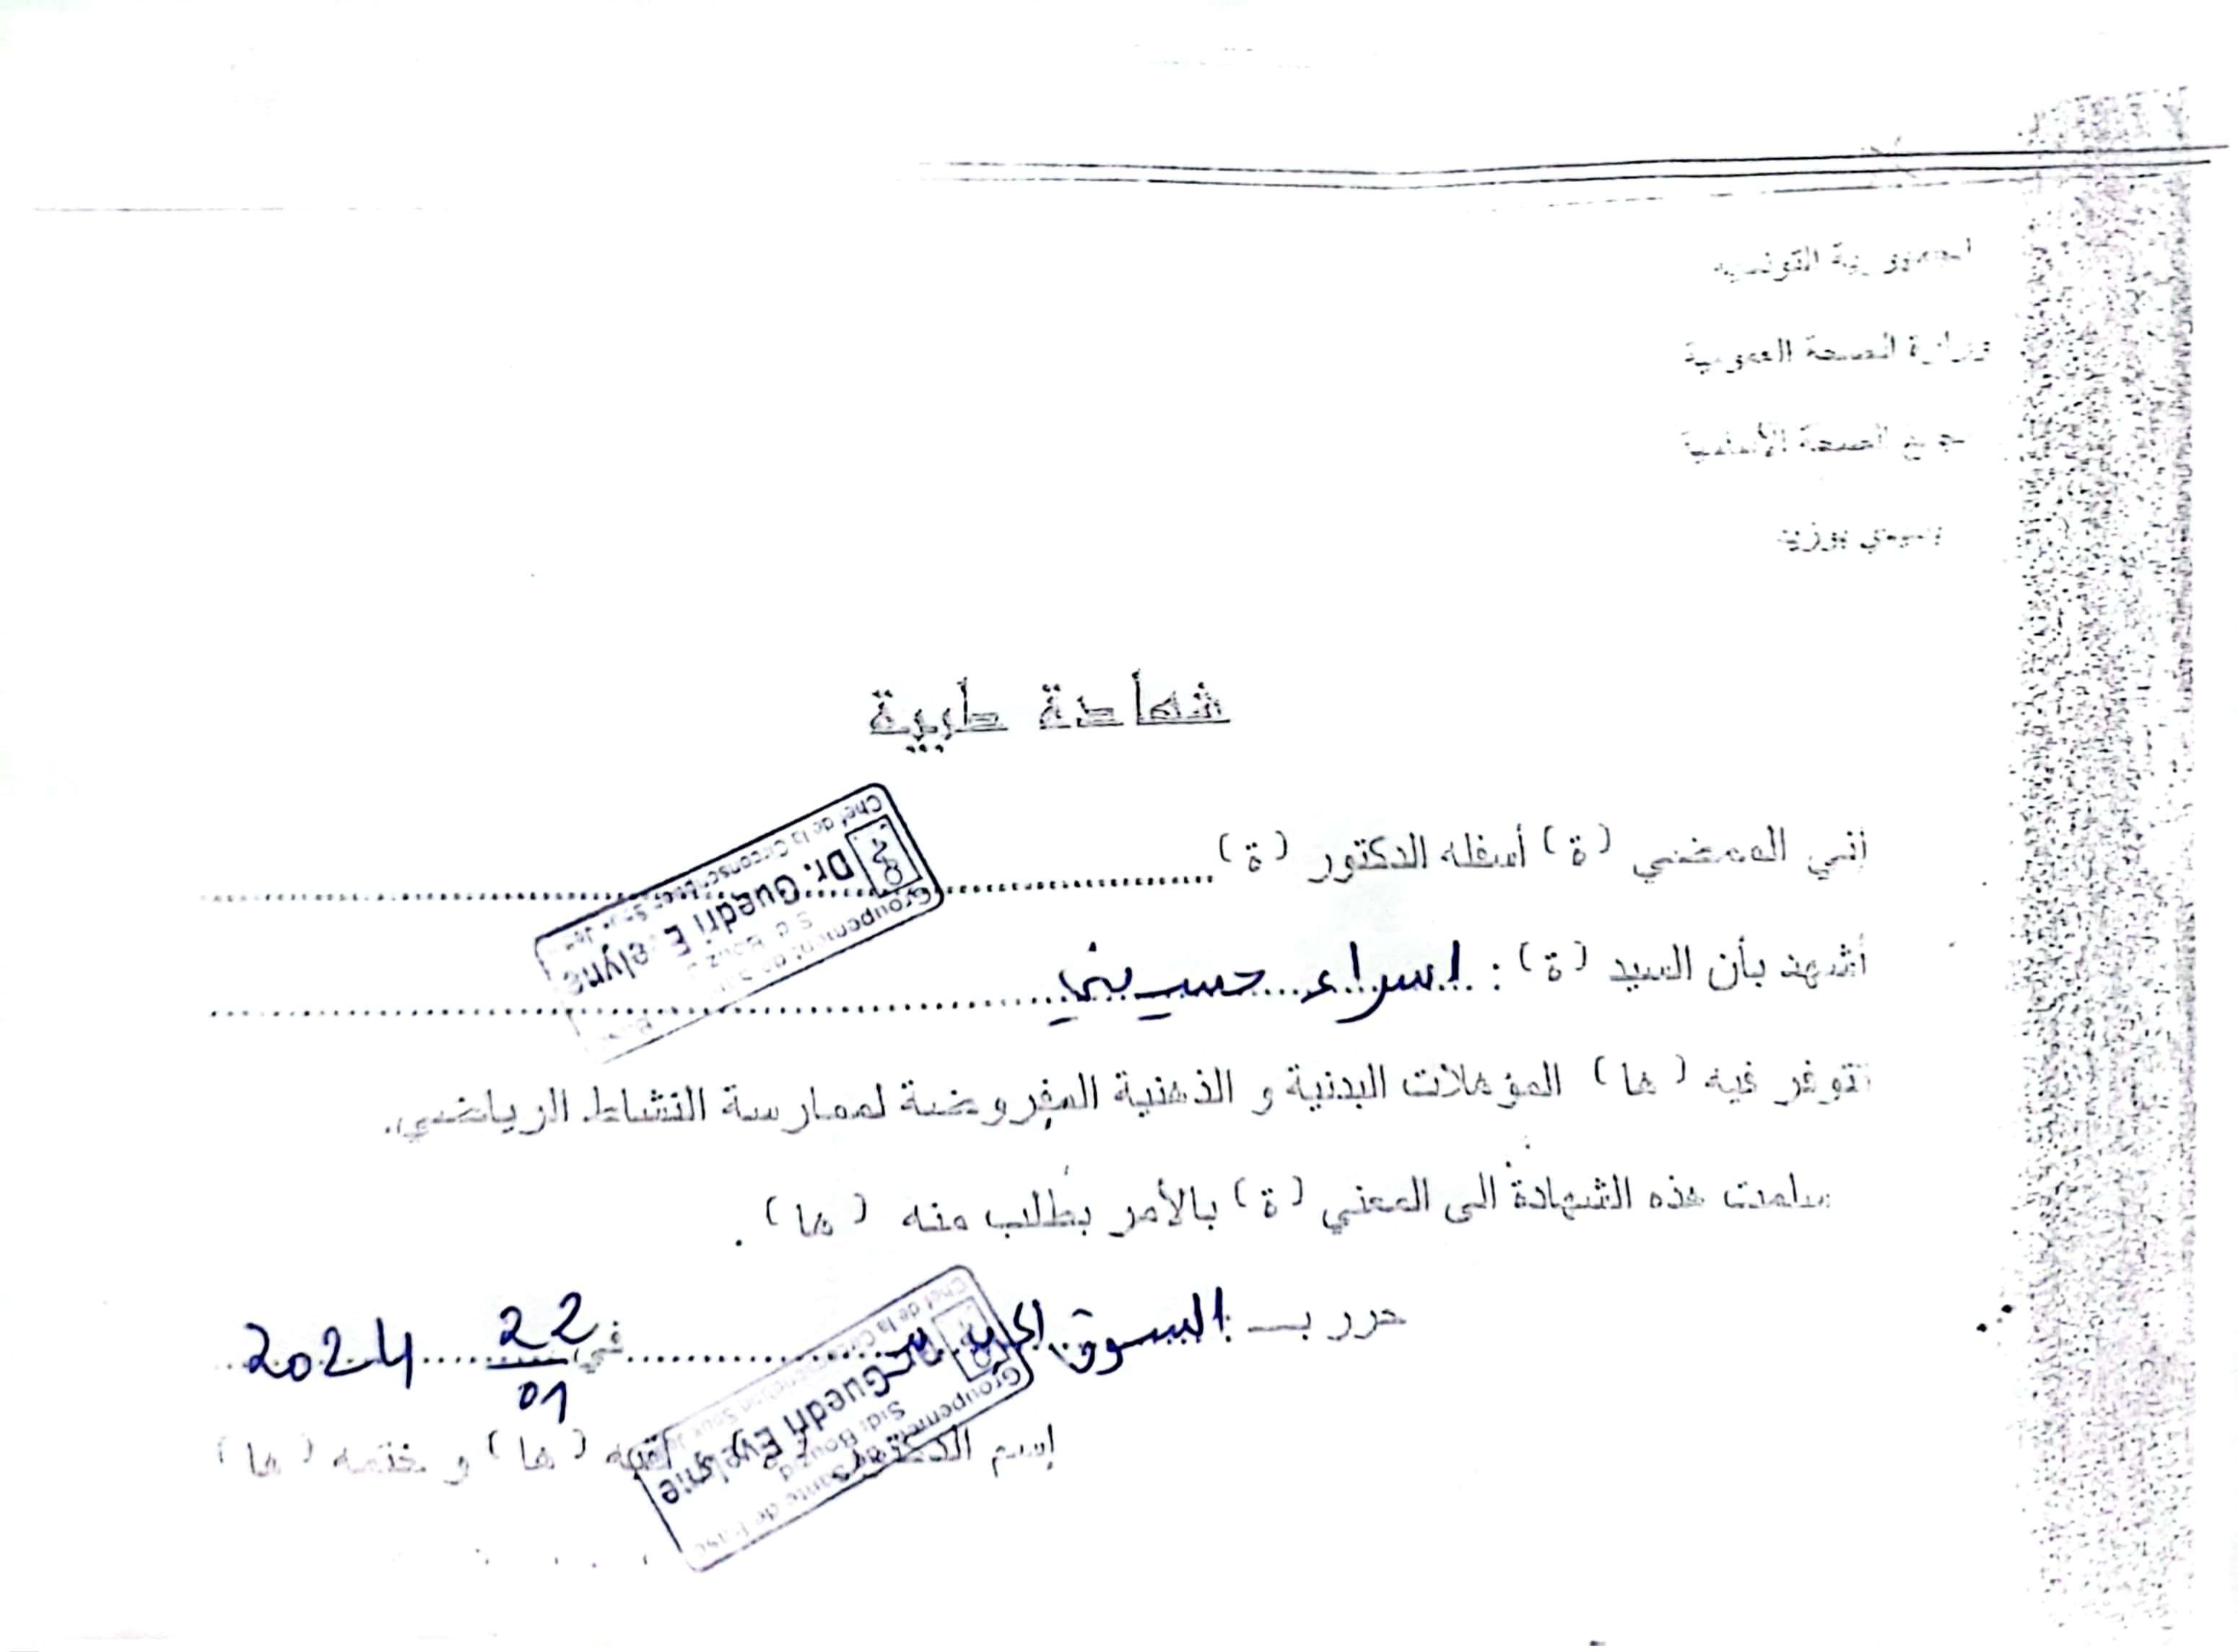 الجمهورية التونسية
وزارة الصحة العمومية
مجمع الصحة الأساسية
بسيدي بوزيد
شهادة طبية
إني الممضي (ة) أسفله الدكتور (ة)
Groupement de
Sidi Bouz
Dr. Guedri Evelyne
Chef de la Circonscription
أشهد بأن السيد (ة) : اسراء حسيني
تتوفر فيه (ها) المؤهلات البدنية و الذهنية المفروضة لممارسة النشاط الرياضي.
سلمت هذه الشهادة الى المعني (ة) بالأمر بطلب منه (ها) .
حرر بـ السوق الجديد في 22/01 2024
إسم الدكتور (ة) و لقبه (ها) و ختمه (ها)
Groupement Santé de Base
Sidi Bouzid
Guedri Evelyne
Chef de la Circonscription